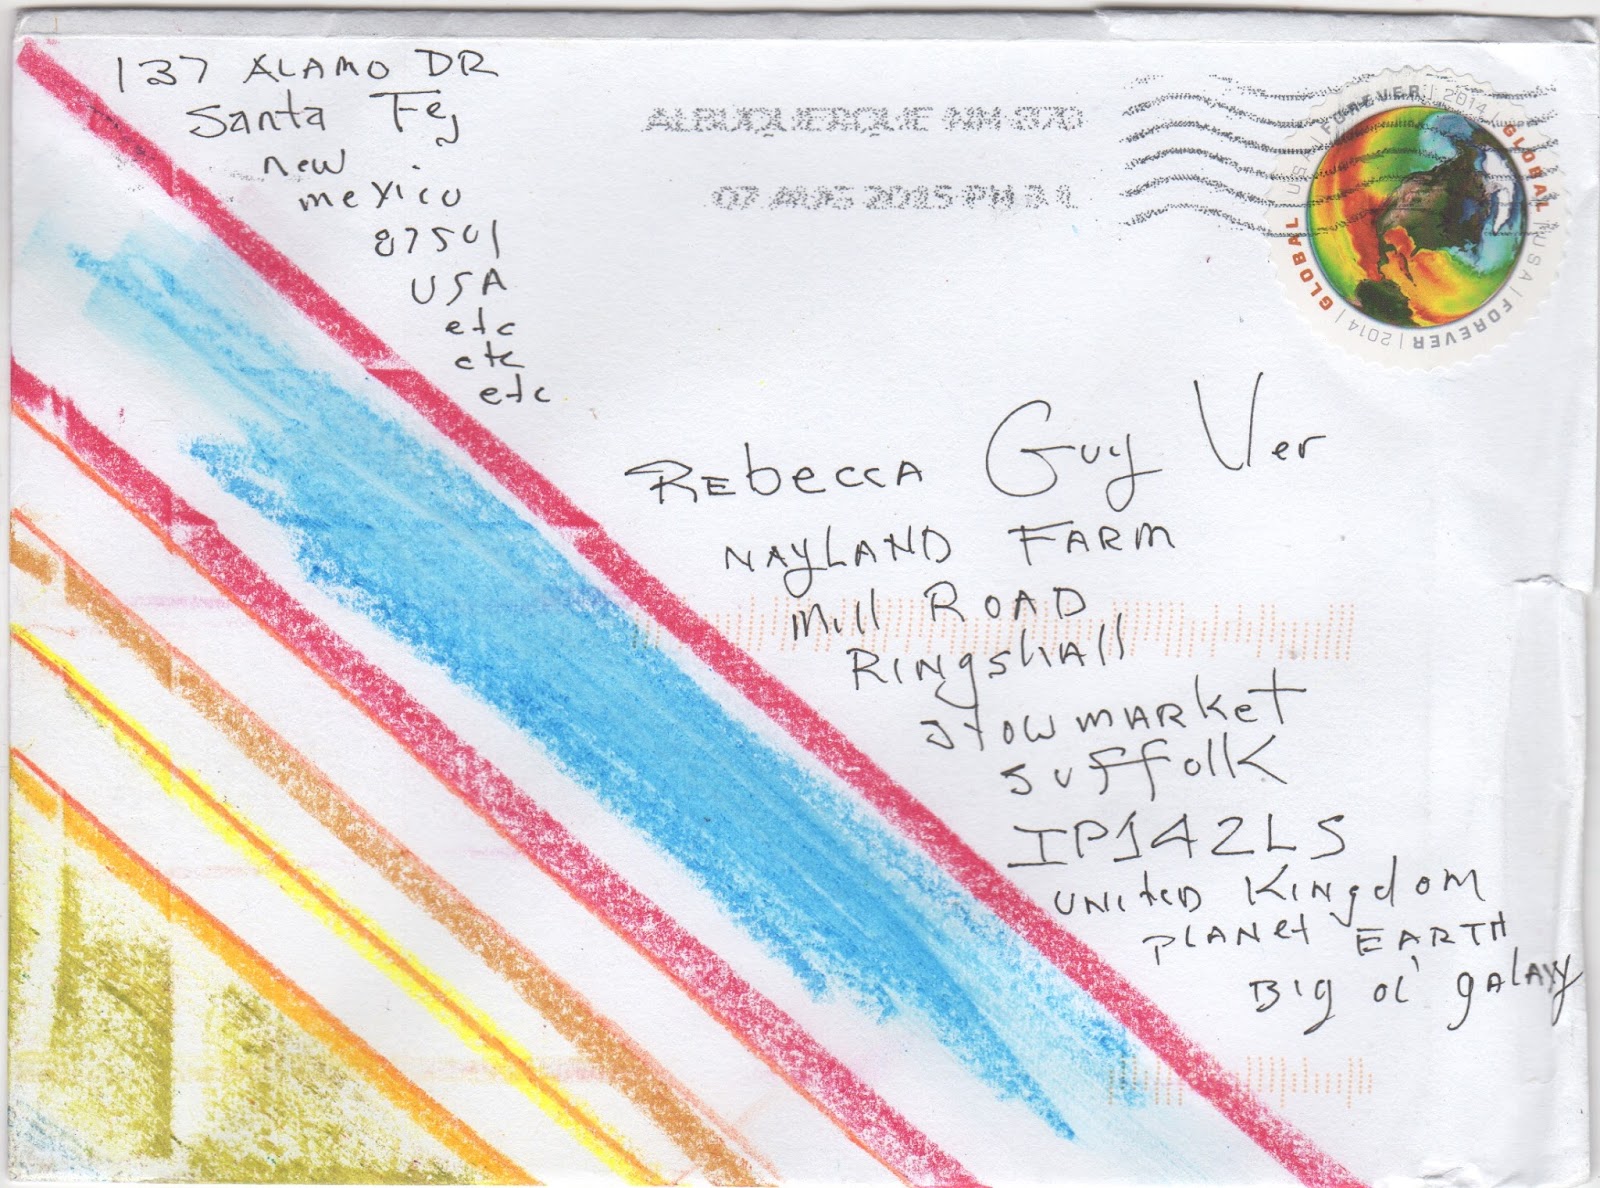 137 ALAMO DR
Santa Fe,
new
mexico
87501
USA
etc
etc
etc
ALBUQUERQUE NM 870
07 AUG 2015 PM 3 L
GLOBAL | USA | FOREVER | 2014 | GLOBAL | USA | FOREVER | 2014 |
REbeccA Guy Ver
NAYLAND FARM
Mill ROAD
RINgshall
StowmARket
suffolk
IP142LS
UNitED KINgdom
PLANet EARTH
BIg ol' gALAxy